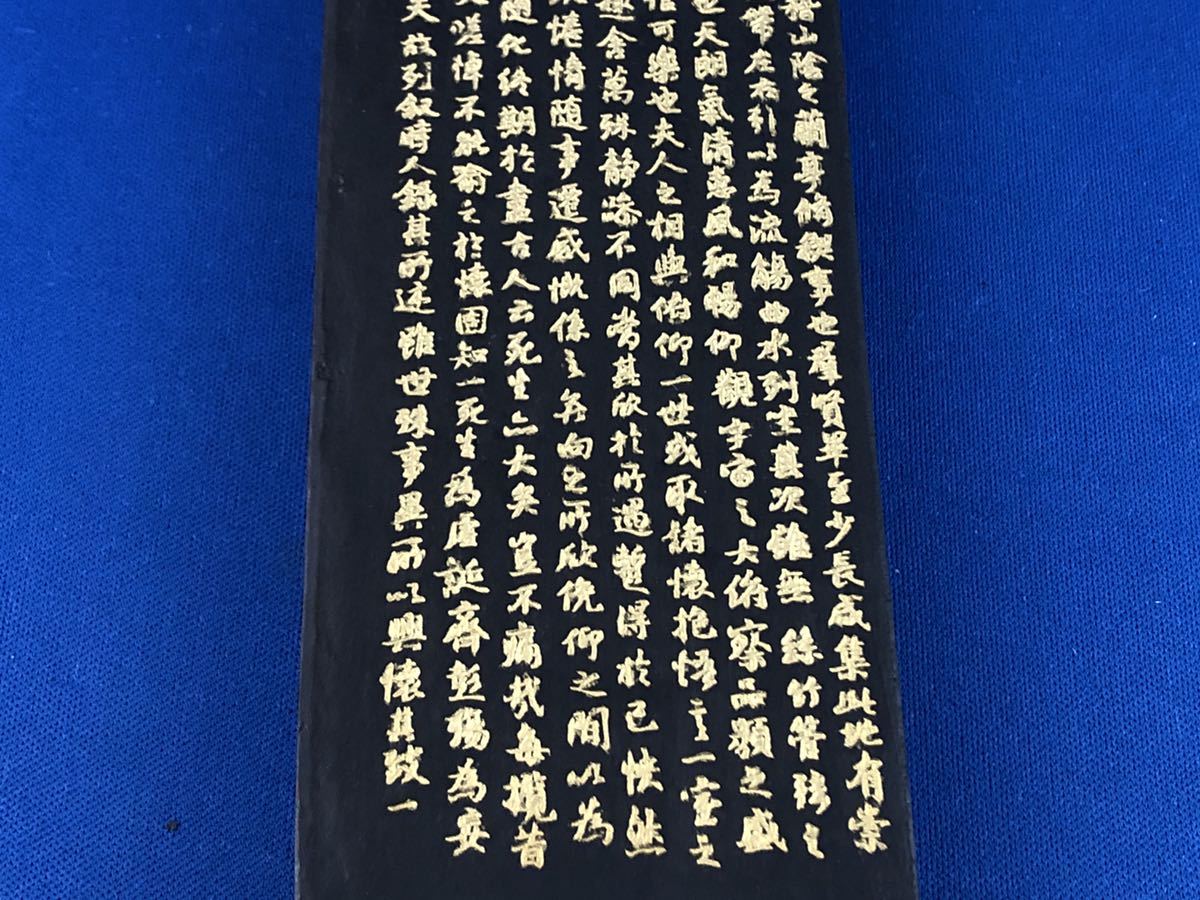 稽山陰之蘭亭脩禊事也羣賢畢至少長咸集此地有崇
帶左右引以為流觴曲水列坐其次雖無絲竹管弦之
也天朗氣清惠風和暢仰觀宇宙之大俯察品類之盛
信可樂也夫人之相與俯仰一世或取諸懷抱悟言一室之
趣舍萬殊靜躁不同當其欣於所遇蹔得於己怏然
倦情隨事遷感慨係之矣向之所欣俛仰之閒以為
隨化終期於盡古人云死生亦大矣豈不痛哉每攬昔
嗟悼不能喻之於懷固知一死生為虛誕齊彭殤為妄
夫故列叙時人錄其所述雖世殊事異所以興懷其致一